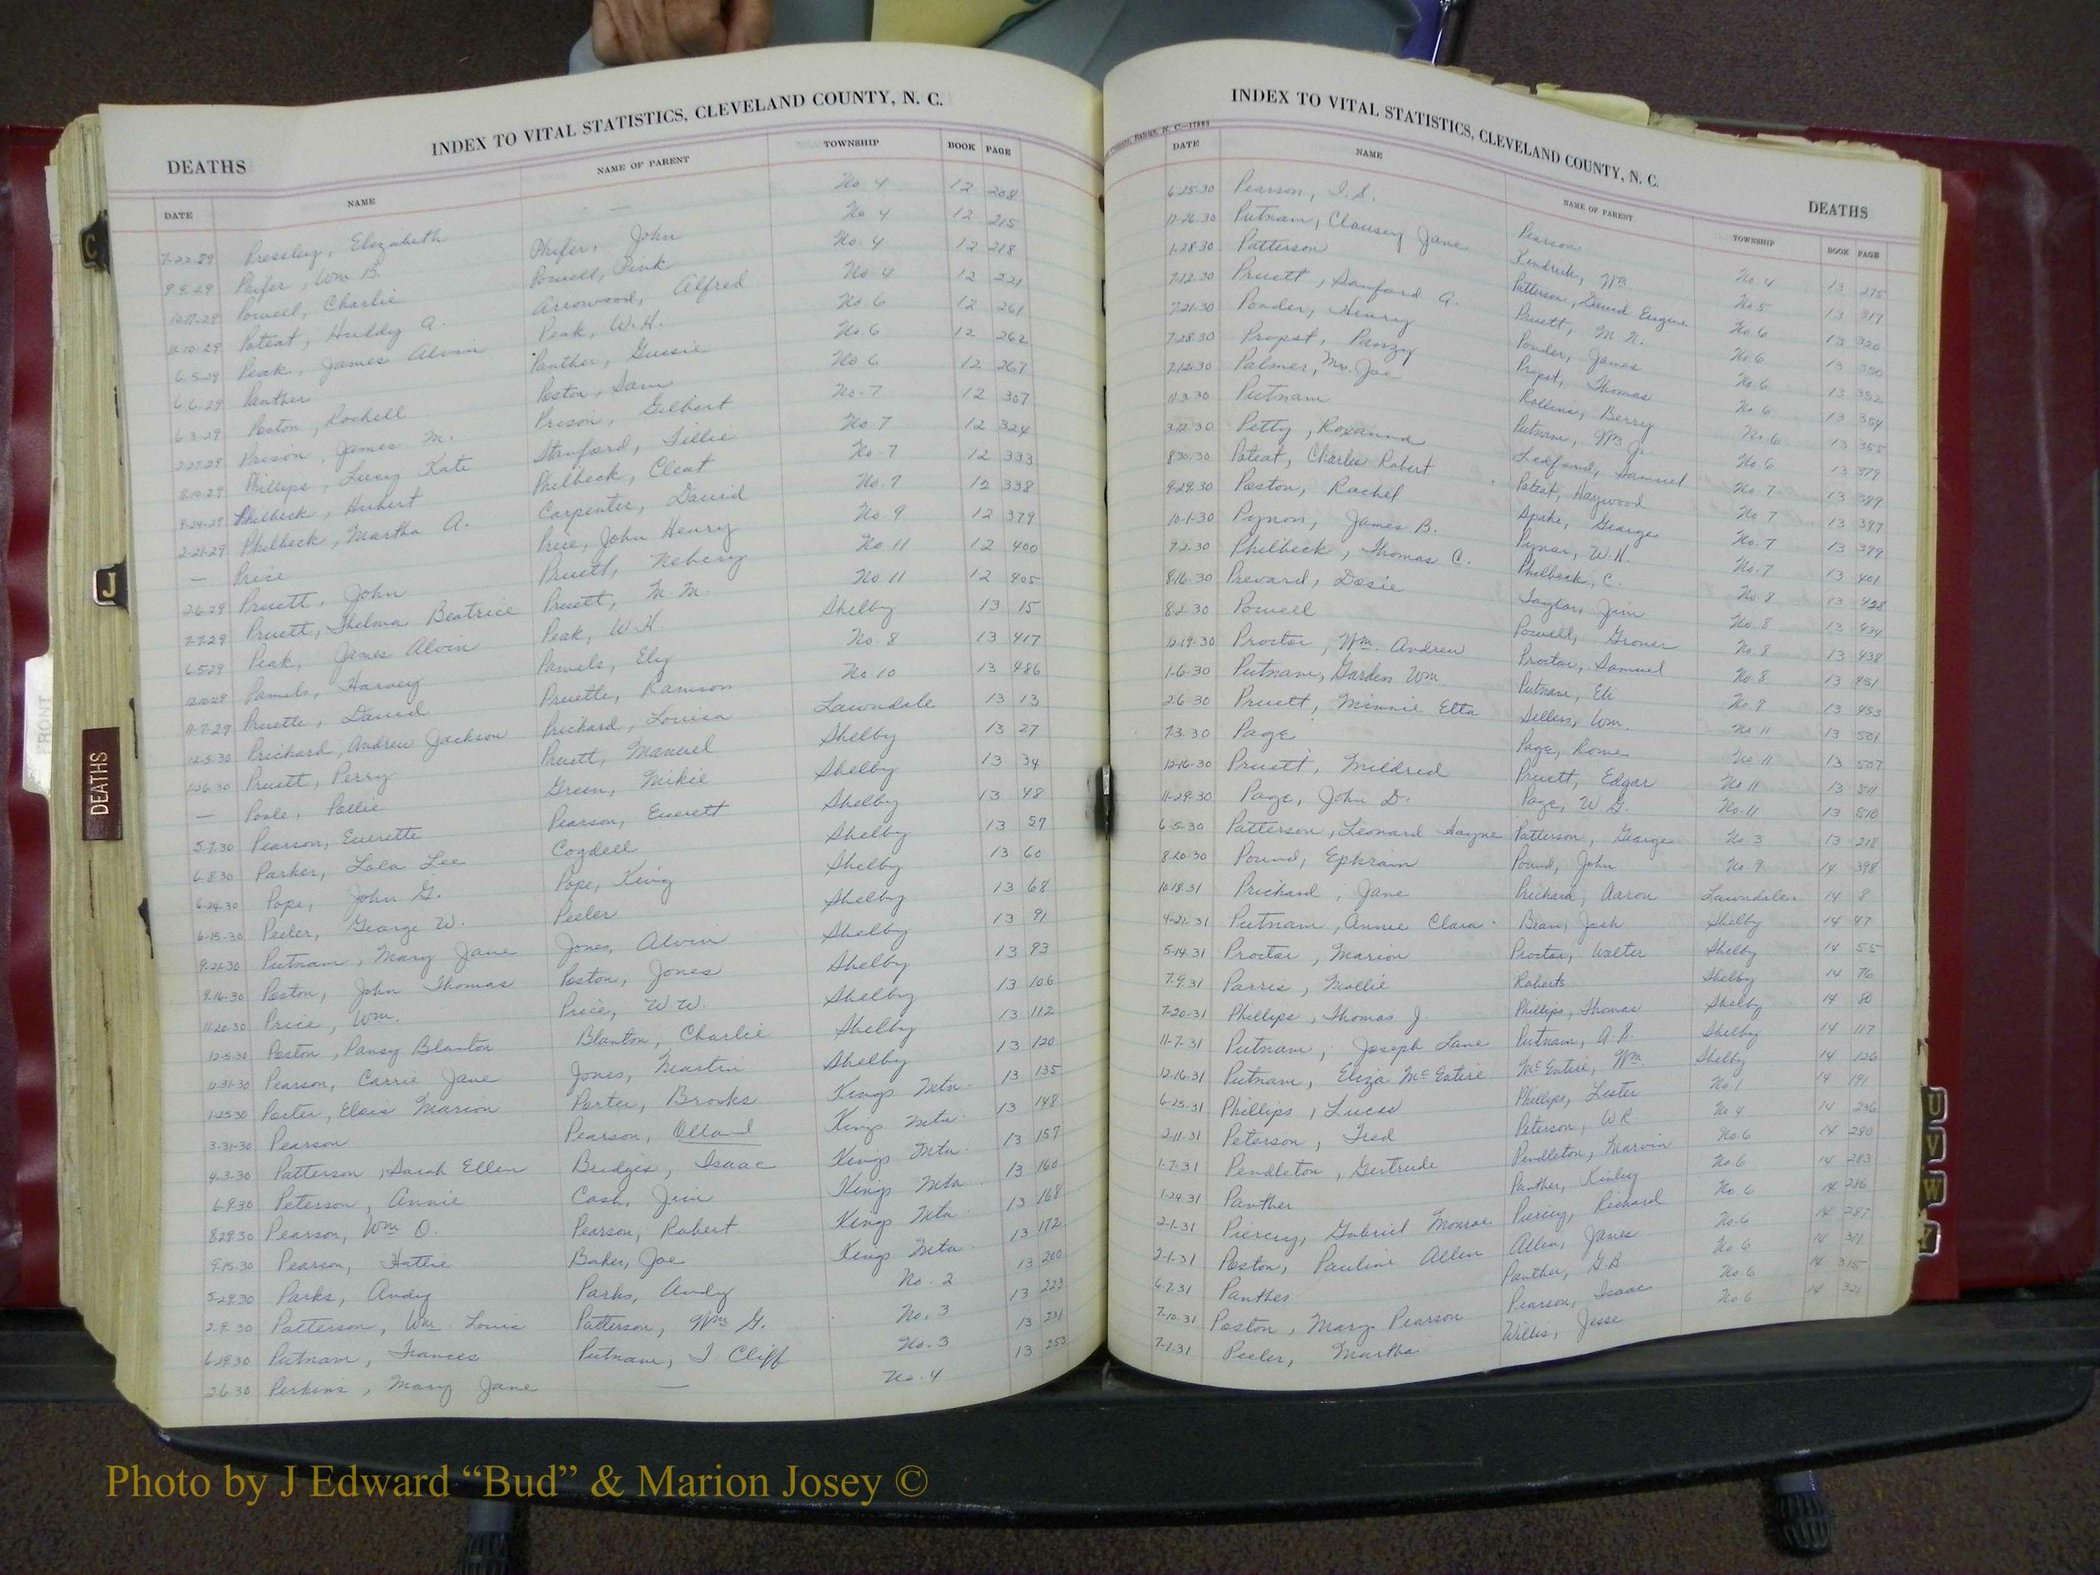 INDEX TO VITAL STATISTICS, CLEVELAND COUNTY, N. C.
DEATHS
DATE NAME NAME OF PARENT TOWNSHIP BOOK PAGE
7-22-29 Pressley, Elizabeth — No. 4 12 208
9-9-29 Phifer, Wm B. Phifer, John No 4 12 215
10-17-29 Powell, Charlie Powell, Pink No. 4 12 218
11-10-29 Poteat, Huldy A. Arrowood, Alfred No 4 12 221
6-5-29 Peak, James Alvin Peak, W.H. No. 6 12 261
6-6-29 Panther Panther, Gussie No 6 12 262
6-3-29 Poston, Rochell Poston, Sam No 6 12 267
2-27-29 Prison, James M. Prison, Gilbert No. 7 12 307
11-10-29 Phillips, Lucy Kate Stanford, Tillie No 7 12 324
9-24-29 Philbeck, Hubert Philbeck, Cleat No. 7 12 333
2-21-29 Philbeck, Martha A. Carpenter, David No. 7 12 338
— Price Price, John Henry No. 9 12 379
2-6-29 Pruett, John Pruett, Nebery No 11 12 400
7-7-29 Pruett, Thelma Beatrice Pruett, M. M. No 11 12 405
6-5-29 Peak, James Alvin Peak, W.H. Shelby 13 15
12-10-29 Pamels, Harvey Pamels, Ely No. 8 13 417
11-7-29 Pruette, David Pruette, Ramson No 10 13 486
12-5-30 Prichard, Andrew Jackson Prichard, Louisa Lawndale 13 13
1-26-30 Pruett, Perry Pruett, Manuel Shelby 13 27
— Poole, Pallie Green, Mikie Shelby 13 34
5-7-30 Pearson, Everette Pearson, Everett Shelby 13 48
6-8-30 Parker, Lola Lee Cogdell Shelby 13 57
6-24-30 Pope, John G. Pope, King Shelby 13 60
6-15-30 Peeler, George W. Peeler Shelby 13 68
9-21-30 Putnam, Mary Jane Jones, Alvin Shelby 13 91
9-16-30 Poston, John Thomas Poston, Jones Shelby 13 93
11-20-30 Price, Wm. Price, W W. Shelby 13 106
12-5-30 Poston, Pansy Blanton Blanton, Charlie Shelby 13 112
12-31-30 Pearson, Carrie Jane Jones, Martin Shelby 13 120
1-25-30 Porter, Elois Marion Porter, Brooks Kings Mtn. 13 135
3-31-30 Pearson Pearson, Olland Kings Mtn. 13 148
4-3-30 Patterson, Sarah Ellen Bridges, Isaac Kings Mtn. 13 157
6-9-30 Peterson, Annie Cash, Jim Kings Mtn. 13 160
8-29-30 Pearson, Wm O. Pearson, Robert Kings Mtn. 13 168
9-15-30 Pearson, Hattie Baker, Joe Kings Mtn. 13 172
5-29-30 Parks, Andy Parks, Andy No. 2 13 200
2-9-30 Patterson, Wm. Louis Patterson, Wm G. No. 3 13 223
6-29-30 Putnam, Frances Putnam, T. Cliff No. 3 13 231
2-6-30 Perkins, Mary Jane — No. 4 13 253
INDEX TO VITAL STATISTICS, CLEVELAND COUNTY, N. C.
DEATHS
DATE NAME NAME OF PARENT TOWNSHIP BOOK PAGE
6-25-30 Pearson, I. S. Pearson No 4 13 275
12-26-30 Putnam, Clausey Jane Kendrick, Wm No 5 13 317
1-28-30 Patterson Patterson, David Eugene No. 6 13 326
7-12-30 Pruett, Sanford A. Pruett, M. N. No 6 13 350
7-21-30 Ponder, Henry Ponder, James No 6 13 352
7-28-30 Propst, Panzy Propst, Thomas No 6 13 354
7-12-30 Palmer, Mrs. Joe Rollins, Berry No 6 13 355
11-3-30 Putnam Putnam, Wm Jr. No 6 13 379
3-12-30 Petty, Roxanna Ledford, Samuel No 7 13 389
8-30-30 Poteat, Charles Robert Poteat, Haywood No 7 13 397
9-29-30 Poston, Rachel Spake, George No. 7 13 399
10-1-30 Pynon, James B. Pynon, W. H. No. 7 13 401
7-2-30 Philbeck, Thomas C. Philbeck, C. No 8 13 428
8-16-30 Prevard, Dosie Taylor, Jim No. 8 13 434
8-2-30 Powell Powell, Grover No. 8 13 438
10-19-30 Proctor, Wm. Andrew Proctor, Samuel No 8 13 451
1-6-30 Putnam, Garden Wm. Putnam, Eli No. 9 13 453
2-6-30 Pruett, Minnie Etta Sellers, Wm. No 11 13 501
7-3-30 Page Page, Rome No 11 13 507
12-16-30 Pruett, Mildred Pruett, Edgar No 11 13 511
11-29-30 Page, John D. Page, W G. No. 11 13 510
6-5-30 Patterson, Leonard Hayne Patterson, George No 3 13 218
8-20-30 Pound, Ephraim Pound, John No 9 14 398
10-18-31 Prichard, Jane Prichard, Aaron Lawndale 14 8
4-21-31 Putnam, Annie Clara Bean, Josh Shelby 14 47
5-14-31 Proctor, Marion Proctor, Walter Shelby 14 55
7-9-31 Parris, Mollie Roberts Shelby 14 76
7-20-31 Phillips, Thomas J. Phillips, Thomas Shelby 14 80
11-7-31 Putnam, Joseph Lane Putnam, A. S. Shelby 14 117
12-16-31 Putnam, Eliza McEntire McEntire, Wm. Shelby 14 126
6-25-31 Phillips, Lucas Phillips, Lester No 1 14 191
2-11-31 Peterson, Fred Peterson, W R No 4 14 236
1-7-31 Pendleton, Gertrude Pendleton, Marvin No 6 14 280
1-24-31 Panther Panther, Kinley No 6 14 283
2-1-31 Piercy, Gabriel Monroe Piercy, Richard No. 6 14 286
2-1-31 Poston, Pauline Allen Allen, James No. 6 14 287
6-2-31 Panther Panther, G.B. No 6 14 311
7-10-31 Poston, Mary Pearson Pearson, Isaac No. 6 14 315
7-1-31 Peeler, Martha Willis, Jesse No 6 14 321
C
J
DEATHS
FRONT
U
V
W
Y
Photo by J Edward “Bud” & Marion Josey ©